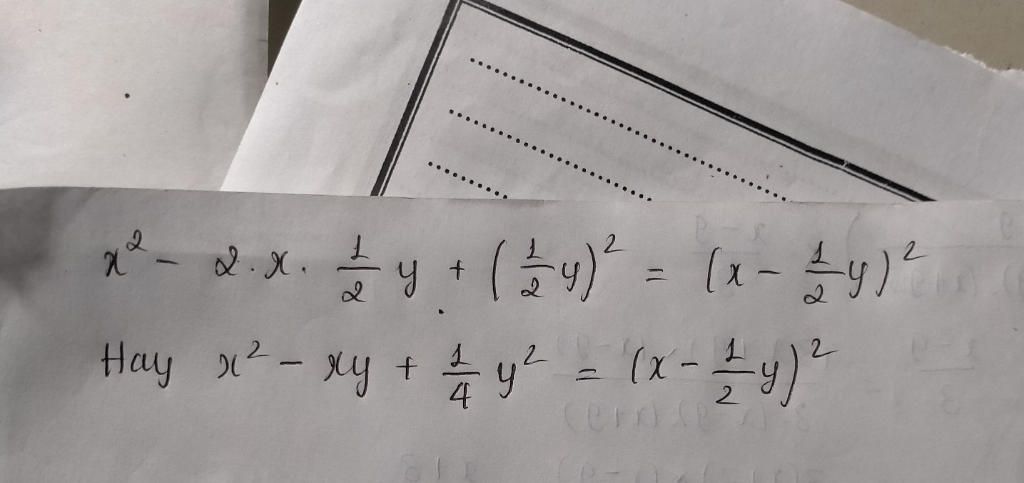 x² - 2.x. 1/2 y + (1/2 y)² = (x - 1/2 y)²
Hay x² - xy + 1/4 y² = (x - 1/2 y)²